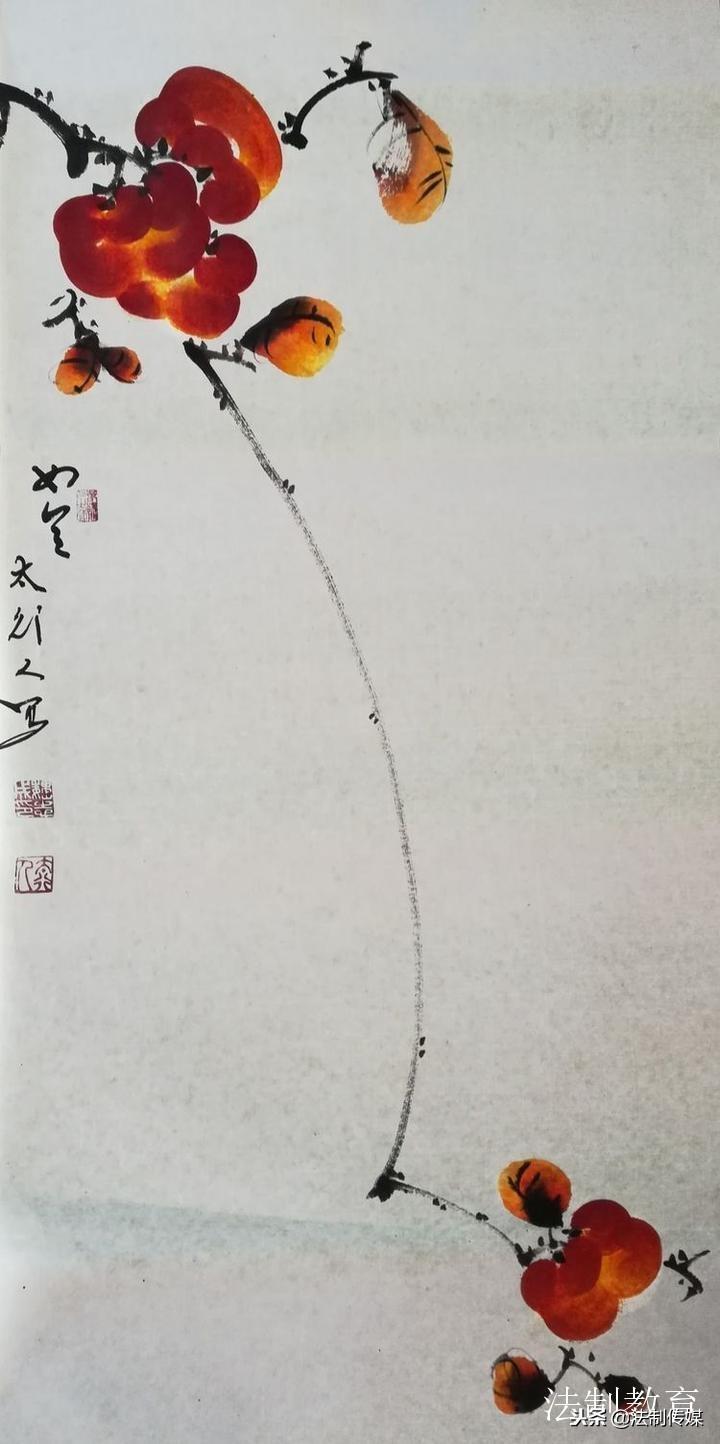 如意
太行人写
法制教育
头条 @法制传媒